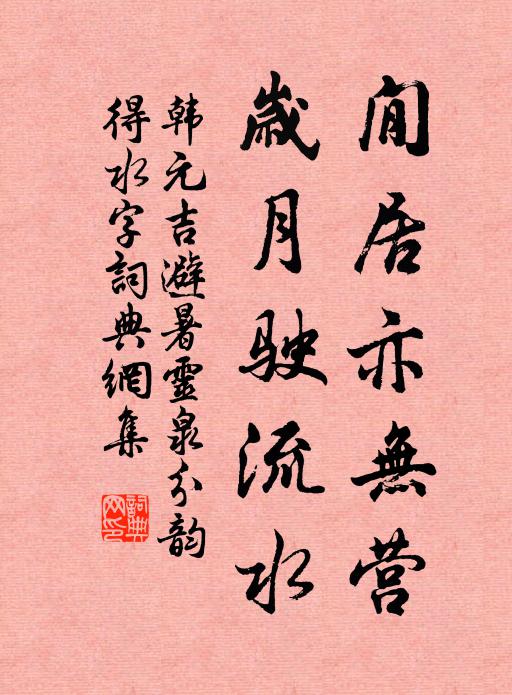 闲居亦無营
歲月駛流水
韩元吉避暑靈泉分韵
得水字詞典網集
詞典
网印